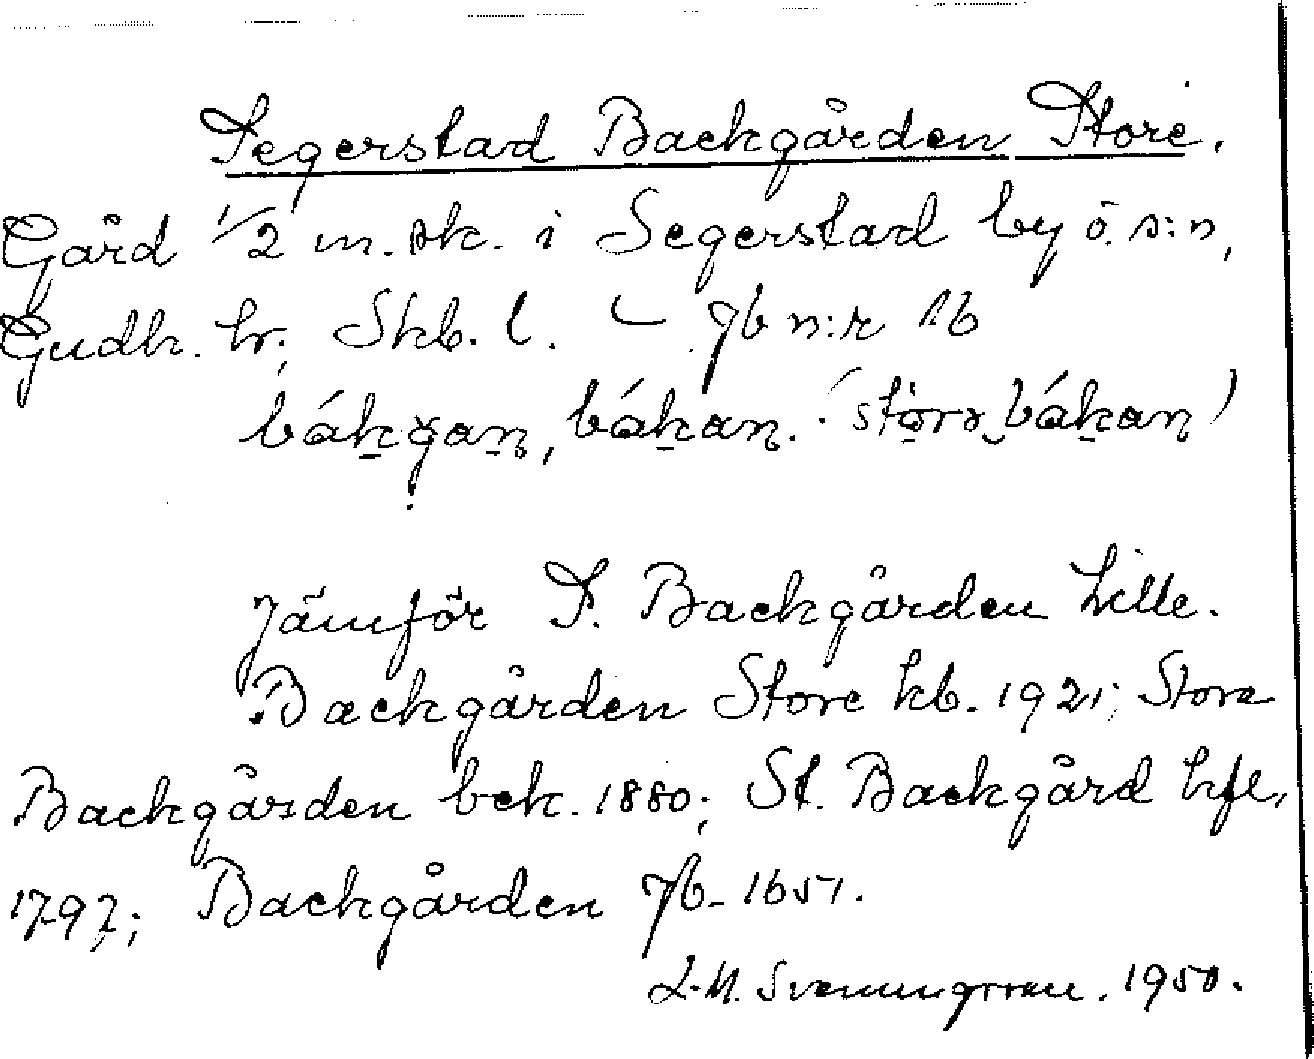 Segerstad Backgården Store.
Gård 1/2 m. sk. i Segerstad by ö. s:n,
Gudh. hr; Skb. l. – jb n:r 16
bákgan, bákan. (stora bákan)
Jämför S. Backgården Lille.
Backgården Store kb. 1921; Stora
Backgården bek. 1880; St. Backgård hfl.
1797; Backgården jb. 1651.
L.M. Svenungsson. 1950.